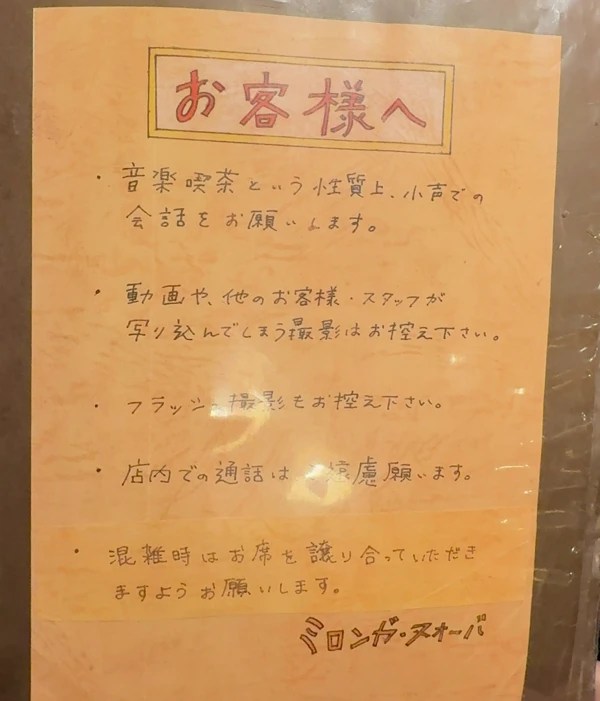 お客様へ
・音楽喫茶という性質上、小声での
会話をお願いします。
・動画や、他のお客様・スタッフが
写り込んでしまう撮影はお控え下さい。
・フラッシュ撮影もお控え下さい。
・店内での通話はご遠慮願います。
・混雑時はお席を譲り合っていただき
ますようお願いします。
ミロンガ・ヌオーバ